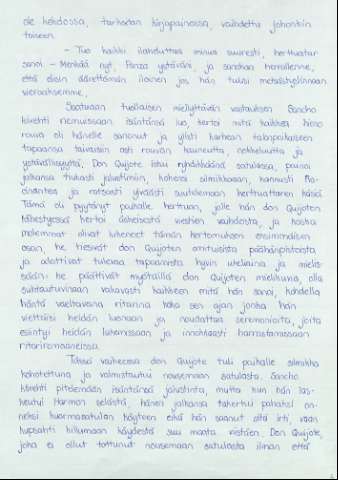 ole kehdossa, tarkoitan kirjapainossa, vaihdettu johonkin
toiseen.
– Tuo kaikki ilahduttaa minua suuresti, herttuatar
sanoi – Menkää nyt, Panza ystäväni, ja sanokaa herrallenne,
että olisin äärettömän iloinen jos hän tulisi metsästyslinnaan
vieraaksemme.
Saatuaan tuollaisen miellyttävän vastauksen Sancho
kiirehti riemuissaan isäntänsä luo, kertoi mitä kaikkea hieno
rouva oli hänelle sanonut ja ylisti karkean talonpoikaiseen
tapaansa taivaisiin asti rouvan kauneutta, nokkeluutta ja
ystävällisyyttä. Don Quijote istui ryhdikkäänä satulassa, painoi
jalkansa tiukasti jalustimiin, kohensi silmikkoaan, kannusti Ro-
cinantea ja ratsasti ylväästi suutelemaan herttuattaren kättä.
Tämä oli pyytänyt paikalle herttuan, jolle hän don Quijoten
lähestyessä kertoi äskeisestä viestien vaihdosta, ja koska
molemmat olivat lukeneet tämän kertomuksen ensimmäisen
osan, he tiesivät don Quijoten omituisista päähänpistoista
ja odottivat tulevaa tapaamista hyvin uteliaina ja mielis-
sään: he päättivät myötäillä don Quijoten mielikuvia, olla
suhtautuvinaan vakavasti kaikkeen mitä hän sanoi, kohdella
häntä vaeltavana ritarina koko sen ajan jonka hän
viettäisi heidän luonaan ja noudattaa seremonioita, joita
esiintyi heidän lukemissaan ja innokkaasti harrastamissaan
ritariromaaneissa.
Tässä vaiheessa don Quijote tuli paikalle silmikko
kohotettuna ja valmistautui nousemaan satulasta. Sancho
kiirehti pitelemään isäntänsä jalustinta, mutta kun hän las-
keutui Harmon selästä, hänen jalkansa takertui pahaksi on-
neksi kuormasatulan köyteen eikä hän saanut sitä irti, vaan
kupsahti killumaan köydestä suu maata vasten. Don Quijote,
joka ei ollut tottunut nousemaan satulasta ilman että